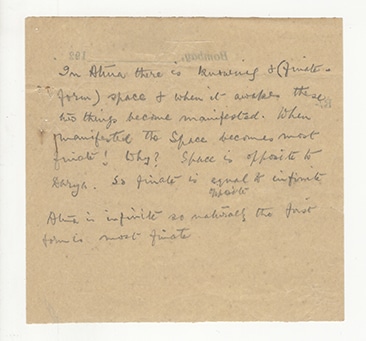 Bombay, 192
In Atma there is knowing & (finate-
form) space & when it awakes these
two things become manifested. When
manifested the Space becomes most
finate! Why? Space is opposite to
So finate is equal & infinite
opposite
Atma is infinite so naturally the first
form is most finate